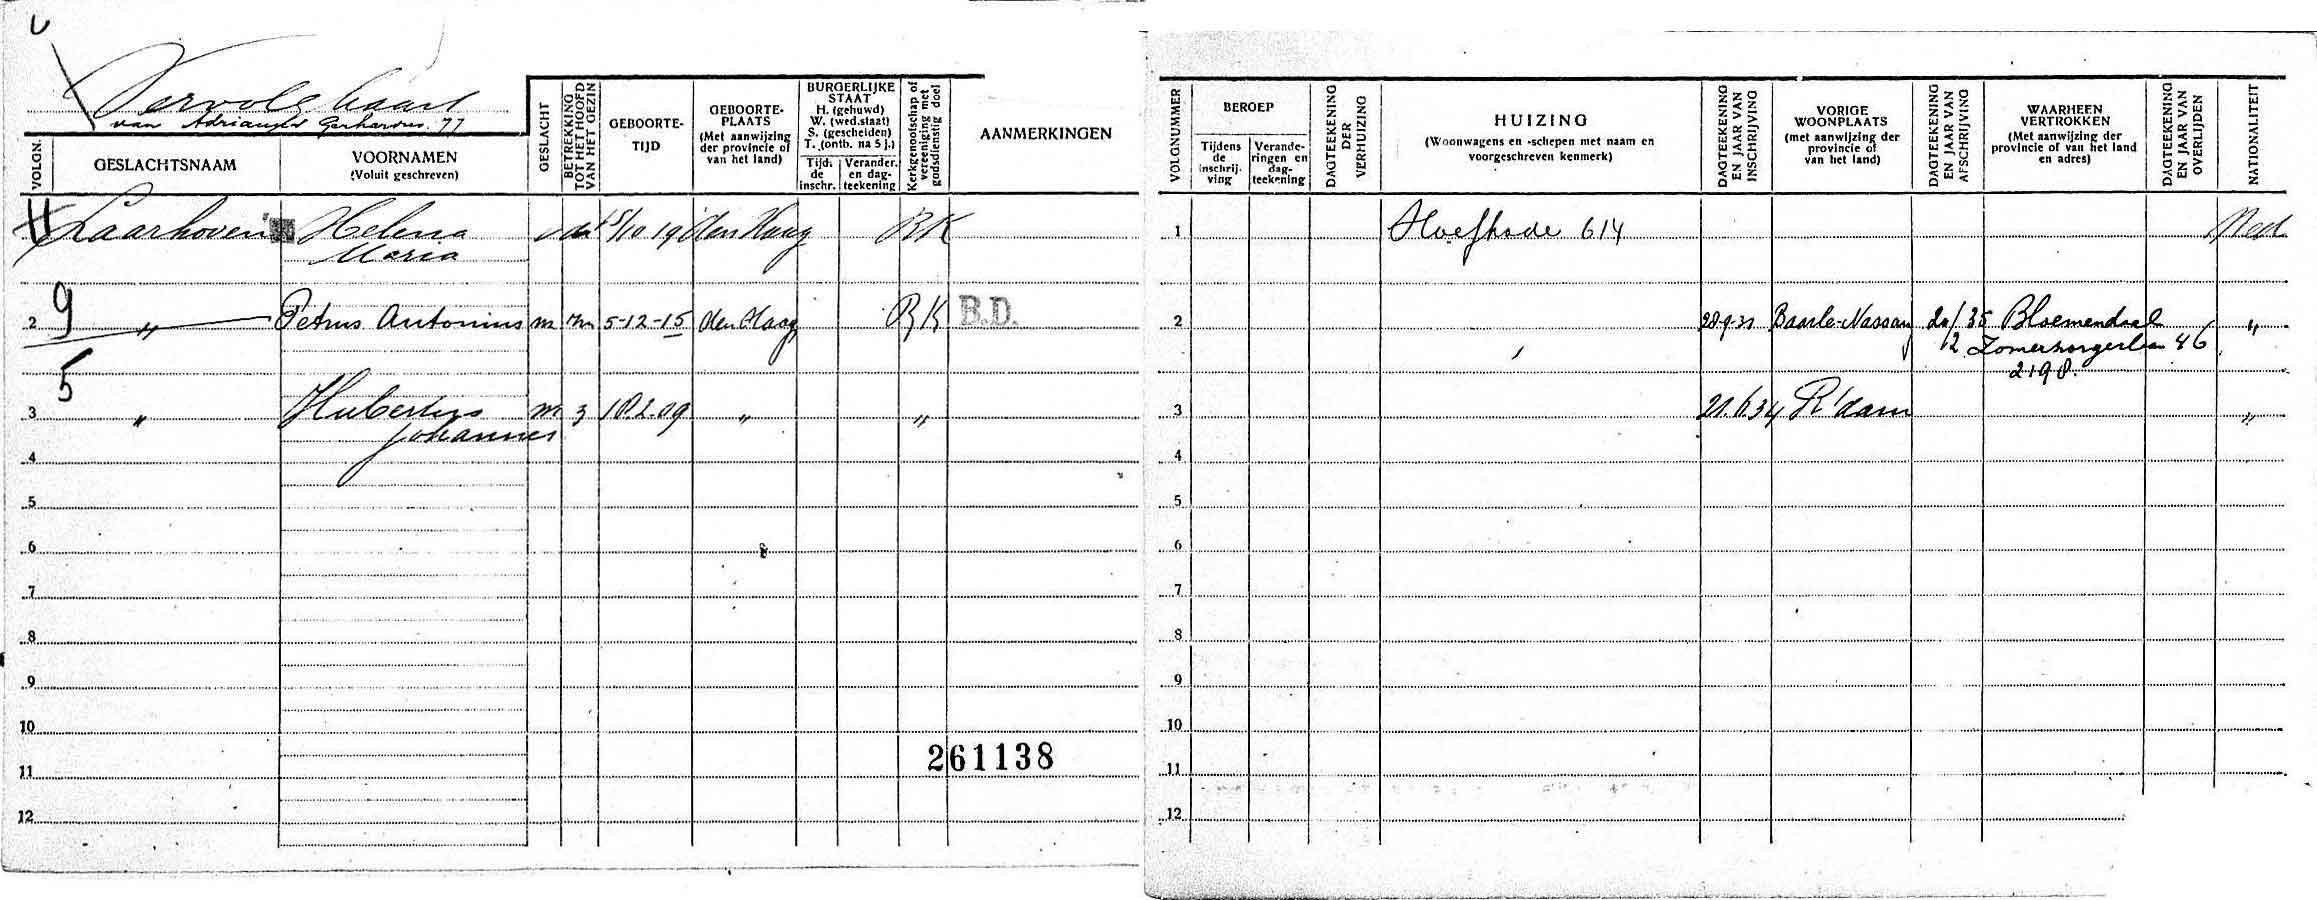 Vervolgkaart
van Adrianus Gerhardus. 77
VOLGN.
GESLACHTSNAAM
VOORNAMEN
(Voluit geschreven)
GESLACHT
BETREKKING
TOT HET HOOFD
VAN HET GEZIN
GEBOORTE-
TIJD
GEBOORTE-
PLAATS
(Met aanwijzing
der provincie of
van het land)
BURGERLIJKE
STAAT
H. (gehuwd)
W. (wed.staat)
S. (gescheiden)
T. (ontb. na 5 j.)
Tijd.
de
inschr.
Verander.
en dag-
teekening
Kerkgenootschap of
vereeniging met
godsdienstig doel
AANMERKINGEN
Laarhoven Helena 5/10 19 den Haag RK
Maria
9
2 " Petrus Antonius m 5-12-15 den Haag RK B.D.
5
3 " Hubertus m z 18.2.09 " "
Johannes
4
5
6
7
8
9
10
261138
11
12
VOLGNUMMER
BEROEP
Tijdens
de
inschrij-
ving
Verande-
ringen en
dag-
teekening
DAGTEEKENING
DER
VERHUIZING
HUIZING
(Woonwagens en -schepen met naam en
voorgeschreven kenmerk)
DAGTEEKENING
EN JAAR VAN
INSCHRIJVING
VORIGE
WOONPLAATS
(met aanwijzing der
provincie of
van het land)
DAGTEEKENING
EN JAAR VAN
AFSCHRIJVING
WAARHEEN
VERTROKKEN
(Met aanwijzing der
provincie of van het land
en adres)
DAGTEEKENING
EN JAAR VAN
OVERLIJDEN
NATIONALITEIT
1 Hoefkade 614 Ned
2 28-9-31 Baarle-Nassau 20/12 35 Bloemendaal "
Zomerzorgerlaan 46
2198.
3 21.6.34 R'dam "
4
5
6
7
8
9
10
11
12